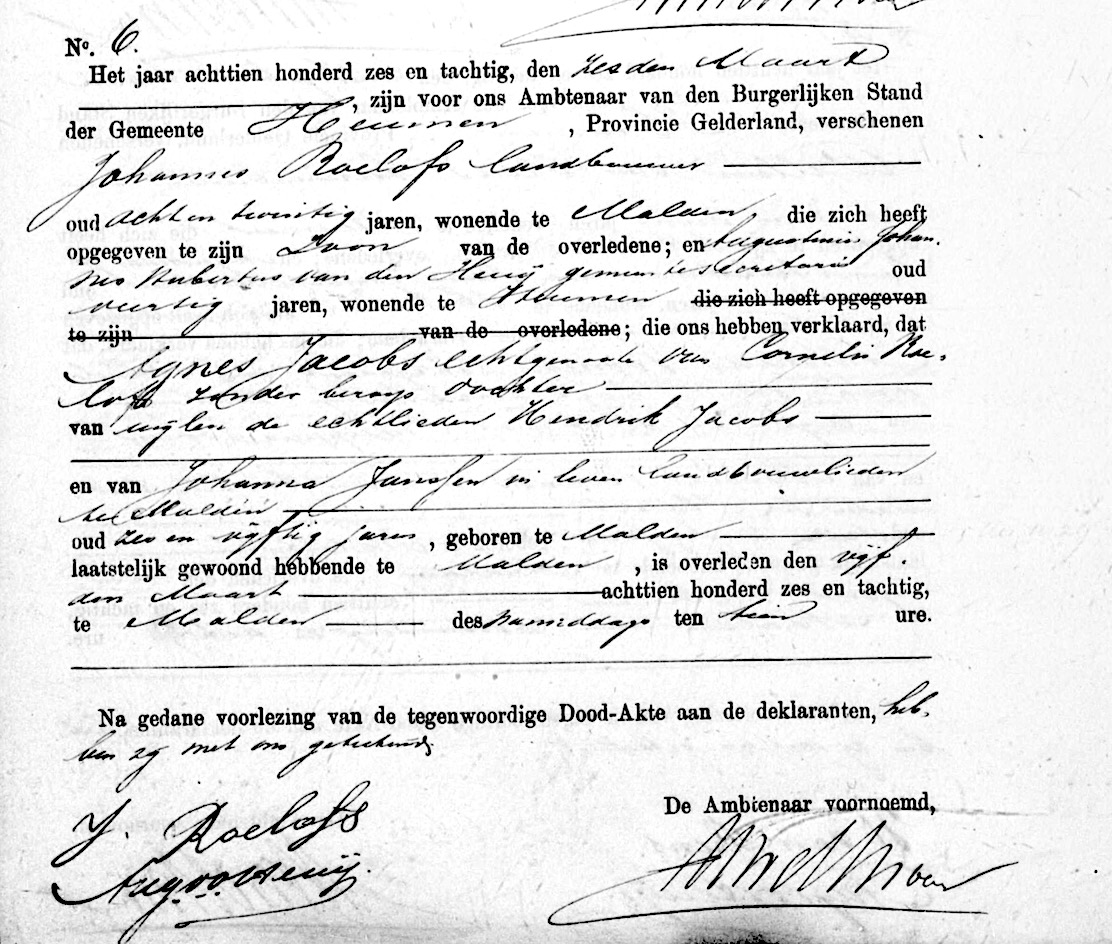 No. 6.
Het jaar achttien honderd zes en tachtig, den zesden Maart
, zijn voor ons Ambtenaar van den Burgerlijken Stand
der Gemeente Heumen , Provincie Gelderland, verschenen
Johannes Roelofs landbouwer
oud acht en twintig jaren, wonende te Malden, die zich heeft
opgegeven te zijn Zoon van de overledene; en Augustinus Johan-
nes Hubertus van den Heuij gemeentesecretaris oud
veertig jaren, wonende te Heumen die zich heeft opgegeven
te zijn van de overledene; die ons hebben verklaard, dat
Agnes Jacobs echtgenoote van Cornelis Roe-
lofs zonder beroep dochter
van wijlen de echtlieden Hendrik Jacobs
en van Johanna Janssen in leven landbouwlieden
te Malden
oud zes en vijftig jaren, geboren te Malden
laatstelijk gewoond hebbende te Malden, is overleden den vijf-
den Maart achttien honderd zes en tachtig,
te Malden des namiddags ten tien ure.
Na gedane voorlezing van de tegenwoordige Dood-Akte aan de deklaranten, heb-
ben zij met ons geteekend.
De Ambtenaar voornoemd,
J. Roelofs
Aug vd Heuij.